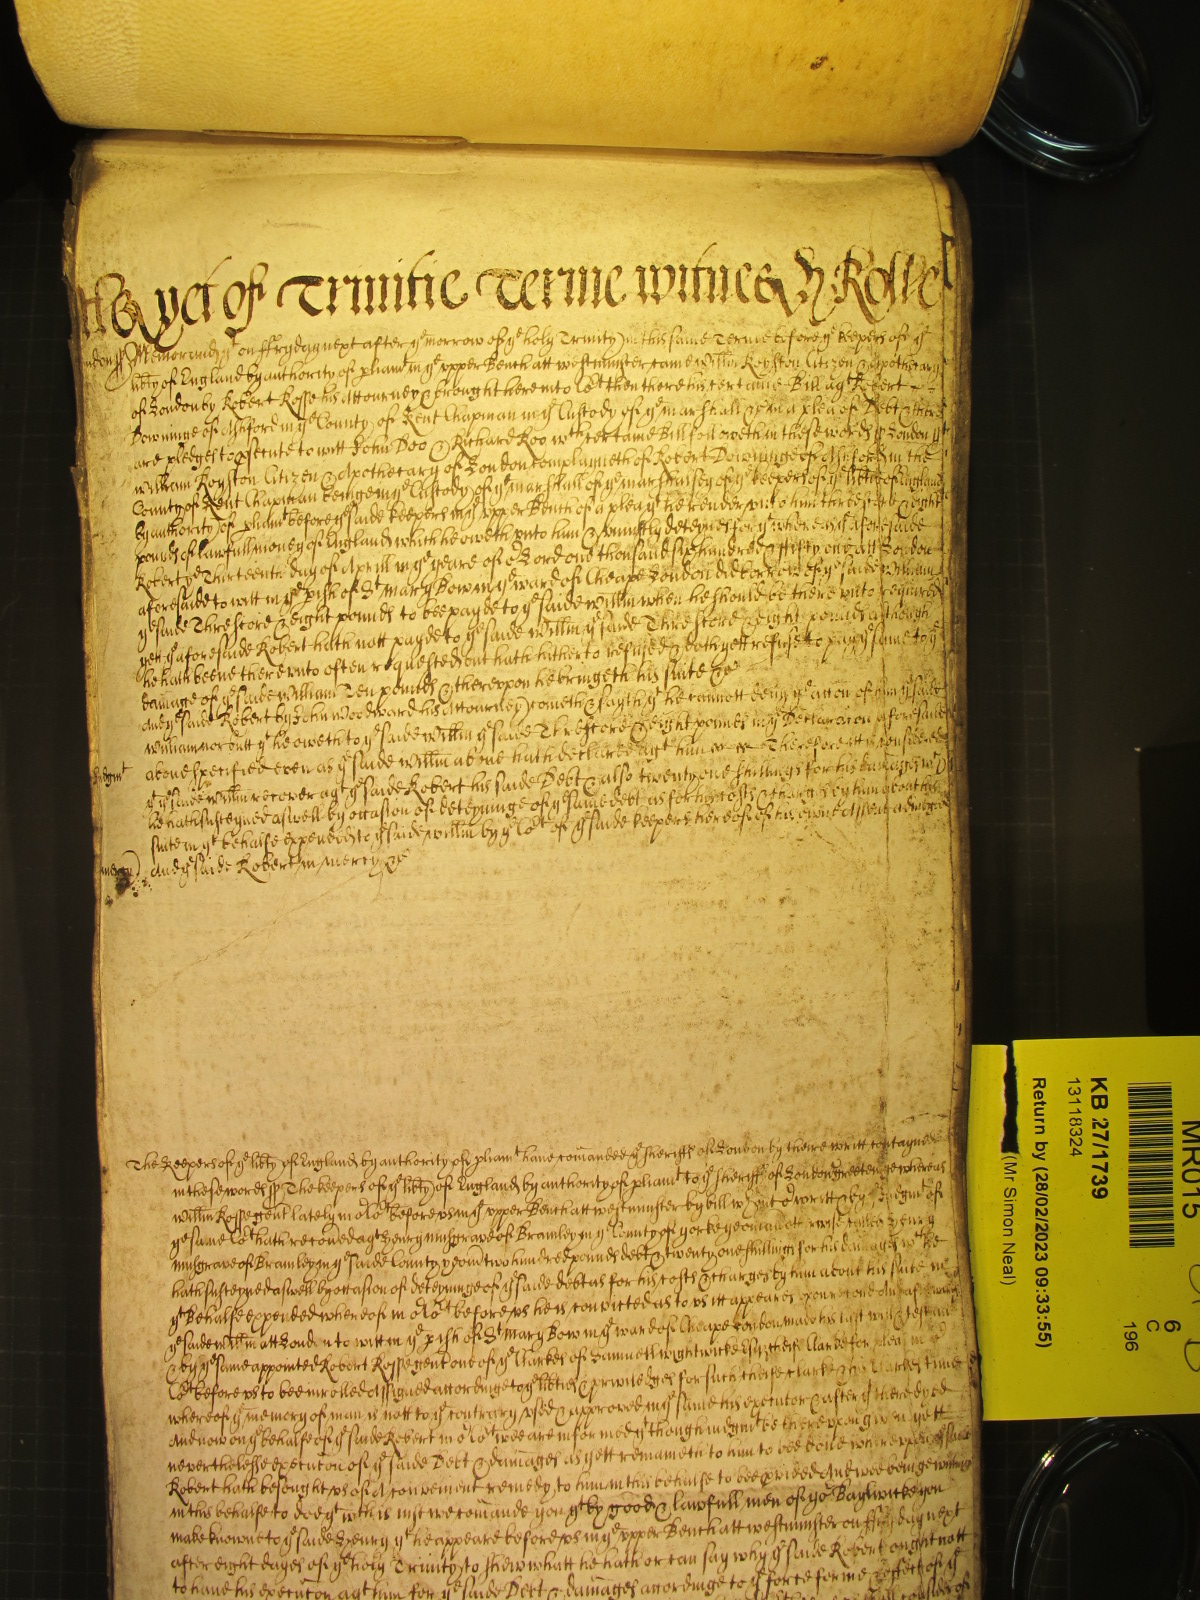 As yet of Trinitie Terme witnes H: Rolle
London ss Memorand yt on ffryday next after ye morrow of ye holy Trinity in this same Terme before ye keepers of ye
libty of England by authority of pliamt in ye vpper Bench att westminster came Willm Royston Citizen & Apothecary
of London by Robert Rosse his Attourney & brought here into Cot then there his certaine Bill agt Robert
Downinge of Ashford in ye County of Kent Chapman in ye Custody of ye marshall &c in a plea of Debt & there
are pledges to psecute to witt John Doo & Richard Roo wch certaine Bill followeth in these words ss London ss
William Royston Citizen & Apothecary of London complaineth of Robert Downinge of Ashford in the
County of Kent Chapman beinge in ye Custody of ye marshall of ye marshalsey of ye keepers of ye libty of England
by authority of pliamt before ye saide keepers in ye vpper Bench of a plea yt he render vnto him threscore & eight
pounds of lawfull money of England which he oweth vnto him & vniustly deteynes for yt whereas ye aforesaide
Robert ye Thirteenth day of Aprill in ye yeare of or Lord one thousand six hundred & fifty one att London
aforesaide to witt in ye pish of St Mary Bow in ye ward of Cheape London did borrow of ye saide William
ye saide Threscore & eight pounds to bee payde to ye saide Willm when he should be there vnto required
yett ye aforesaide Robert hath nott payde to ye saide Willm ye saide Threscore & eight pounds although
he hath beene therevnto often requested but hath hitherto refused & doth yett refuse to pay ye same to ye
damage of ye saide William Ten pounds & therevpon he bringeth his suite &c
And ye saide Robert by John Woodward his Attourney cometh & sayth yt he cannott deny ye accon of him ye saide
William nor butt yt he oweth to ye saide Willm ye saide Threscore & eight pounds in ye Declaracon aforesaide
above specified even as ye saide Willm above hath declared agt him Therefore itt is considered
Judgmt yt ye saide Willm recover agt ye saide Robert his saide Debt & also twenty one shillings for his damages wch
he hath susteyned aswell by occasion of deteyninge of ye same debt as for his costs & charges by him about his
suite in yt behalfe expended to ye saide Willm by ye Cot of ye saide keepers here of his owne Assent adiudged
mercy And ye saide Robert in mercy &c
The keepers of ye libty of England by authority of pliamt have comanded ye sheriffs of London by there writt contayned
in these words ss The keepers of ye libty of England by authority of pliamt to ye sheriffs of London greeteinge whereas
Willm Rosse gent lately in or Cot before vs in ye vpper Bench att westminster by bill wthout or writt & by Judgmt of
ye same Cot hath recovered agt Henry musgrave of Bramley in ye County of yorke yeoman otherwise called Henry
musgrave of Bramley in ye saide County yeom two hundred pounds debt & twenty one shillings for his damages wch he
hath susteyned aswell by occasion of deteyninge of ye saide debt as for his costs & charges by him about his suite in
yt Behalfe expended whereof in or Cot before vs he is convicted as to vs itt appeares
ye saide Willm att London to witt in ye pish of St Mary Bow in ye ward of Cheape London made his last will & testamt
& by ye same appointed Robert Rosse gent one of ye Clarkes of Samuell wightwicke Esqr cheife Clarke for pleas in ye
Cot before vs to bee inrolled Assigned accordinge to ye libties & priviledges for such cheife clarke & his Clarkes time
whereof ye memory of man is nott to ye contrary vsed & approved in ye same his executor & after yt there dyed
And now on ye behalfe of ye saide Robert in or Cot wee are informed yt though iudgmt be therevpon given yett
neverthelesse execucon of ye saide Debt & damages as yett remaineth to him to bee done wherevpon ye saide
Robert hath besought vs of A convenient remedy to him in this behalfe to bee pvided And wee beinge willing
in this behalfe to doe yt wch is iust we comande you yt by good & lawfull men of yor Baylywicke you
make knowne to ye saide Henry yt he appeare before vs in ye vpper Bench att westminster on ffryday next
after eight dayes of ye holy Trinity to shew what he hath or can say why ye saide Robert ought nott
to have his execucon agt him for ye saide Debt & damages accordinge to ye force forme & effect of ye
MR015
KB 27/1739
13118324
Return by (28/02/2023 09:33:55)
(Mr Simon Neal)
6
C
196